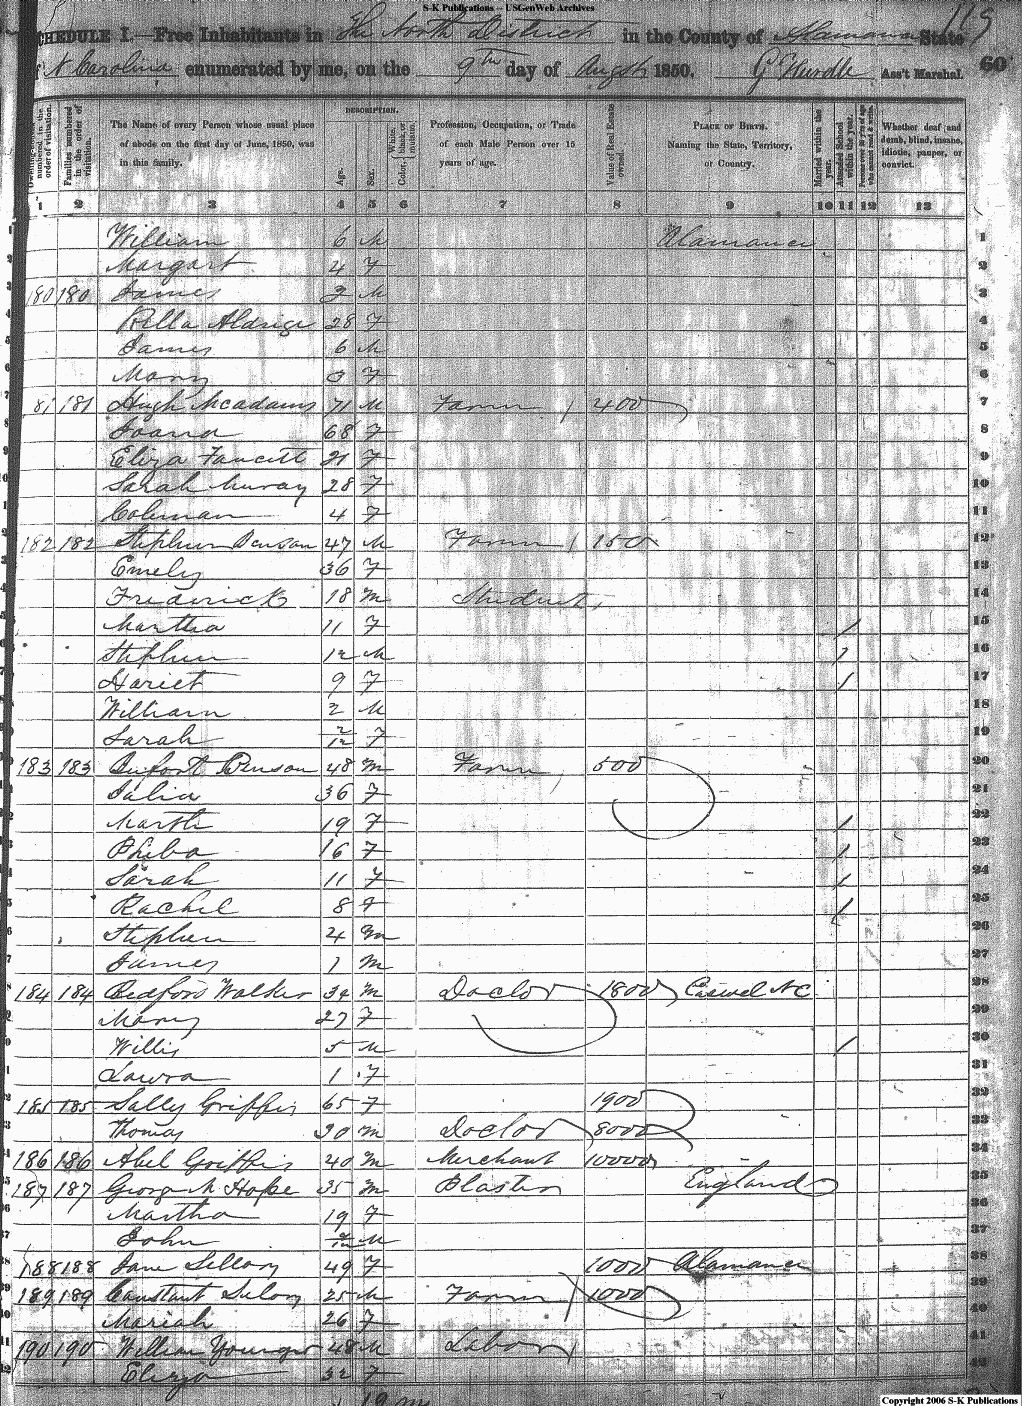 S-K Publications -- USGenWeb Archives
119
SCHEDULE I.—Free Inhabitants in The North District in the County of Alamance State
of N Carolina enumerated by me, on the 9th day of Augst 1850. G Hurdle Ass't Marshal. 60
DESCRIPTION.
Dwelling-houses numbered in the order of visitation.
Families numbered in the order of visitation.
The Name of every Person whose usual place of abode on the first day of June, 1850, was in this family.
Age.
Sex.
Color, White, black, or mulatto.
Profession, Occupation, or Trade of each Male Person over 15 years of age.
Value of Real Estate owned.
PLACE OF BIRTH. Naming the State, Territory, or Country.
Married within the year.
Attended School within the year.
Persons over 20 y'rs of age who cannot read & write.
Whether deaf and dumb, blind, insane, idiotic, pauper, or convict.
1 2 3 4 5 6 7 8 9 10 11 12 13
1 William 6 M Alamance 1
2 Margart 4 F 2
3 180 180 James 2 M 3
4 Aldrige 28 F 4
5 James 6 M 5
6 Mary 3 F 6
7 181 181 Hugh McAdams 71 M Farm 400 7
8 Joana 68 F 8
9 Eliza Faucett 21 F 9
10 Sarah Muray 28 F 10
11 Coleman 4 F 11
12 182 182 Stephen Benson 47 M Farm 150 12
13 Emely 36 F 13
14 Frederick 18 M Student 14
15 Martha 11 F / 15
16 Stephen 12 M 1 16
17 Hariet 9 F / 17
18 William 2 M 18
19 Sarah 2/12 F 19
20 183 183 Benson 48 M Farm 500 20
21 Julia 36 F 21
22 Marth 19 F / 22
23 Pheba 16 F / 23
24 Sarah 11 F / 24
25 Rachel 8 F / 25
26 Stephen 4 M 26
27 James 1 M 27
28 184 184 Bedford Walker 34 M Doctor 1800 Caswel NC 28
29 Mary 27 F 29
30 Willis 5 M / 30
31 Laura 1 F 31
32 185 185 Sally Griffis 65 F 1900 32
33 Thomas 30 M Doctor 8000 33
34 186 186 Abel Griffis 40 M Merchant 10000 34
35 187 187 George M Hope 35 M Plaster England 35
36 Martha 19 F 36
37 John 2/12 M 37
38 188 188 Jane Sellory 49 F 1000 Alamance 38
39 189 189 Constant Selory 25 M Farm 1000 39
40 Mariah 26 F 40
41 190 190 William Younger 48 M Labor 41
42 Eliza 32 F 42
19 m
Copyright 2006 S-K Publications